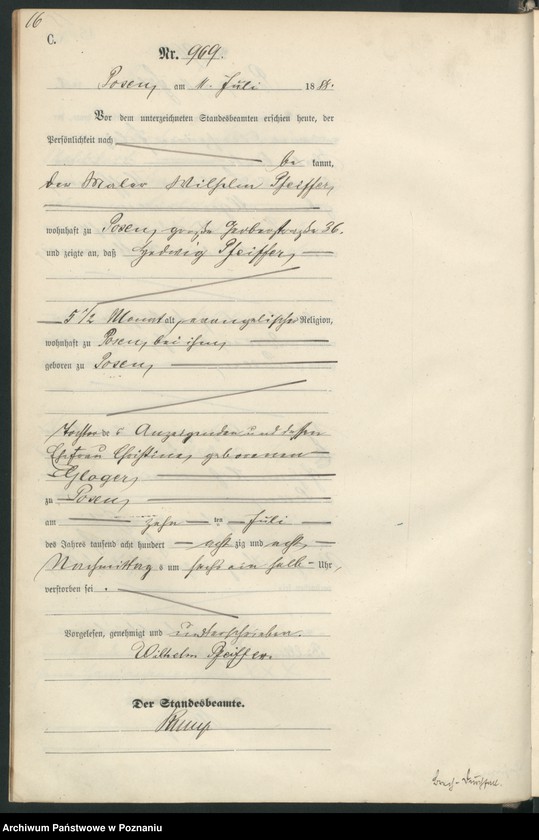 16
C.
Nr. 969.
Posen, am 11. Juli 1888.
Vor dem unterzeichneten Standesbeamten erschien heute, der
Persönlichkeit nach
be kannt,
der Maler Wilhelm Pfeiffer,
wohnhaft zu Posen, große Gerberstraße 36.
und zeigte an, daß Hedwig Pfeiffer,
5 1/2 Monat alt, evangelischer Religion,
wohnhaft zu Posen, bei ihm,
geboren zu Posen,
Tochter des Anzeigenden und dessen
Ehefrau Christine, geborenen
Gloger,
zu Posen,
am zehn ten Juli
des Jahres tausend acht hundert acht zig und acht,
Nachmittag s um sechs ein halb Uhr,
verstorben sei.
Vorgelesen, genehmigt und unterschrieben.
Wilhelm Pfeiffer.
Der Standesbeamte.
Archiwum Państwowe w Poznaniu